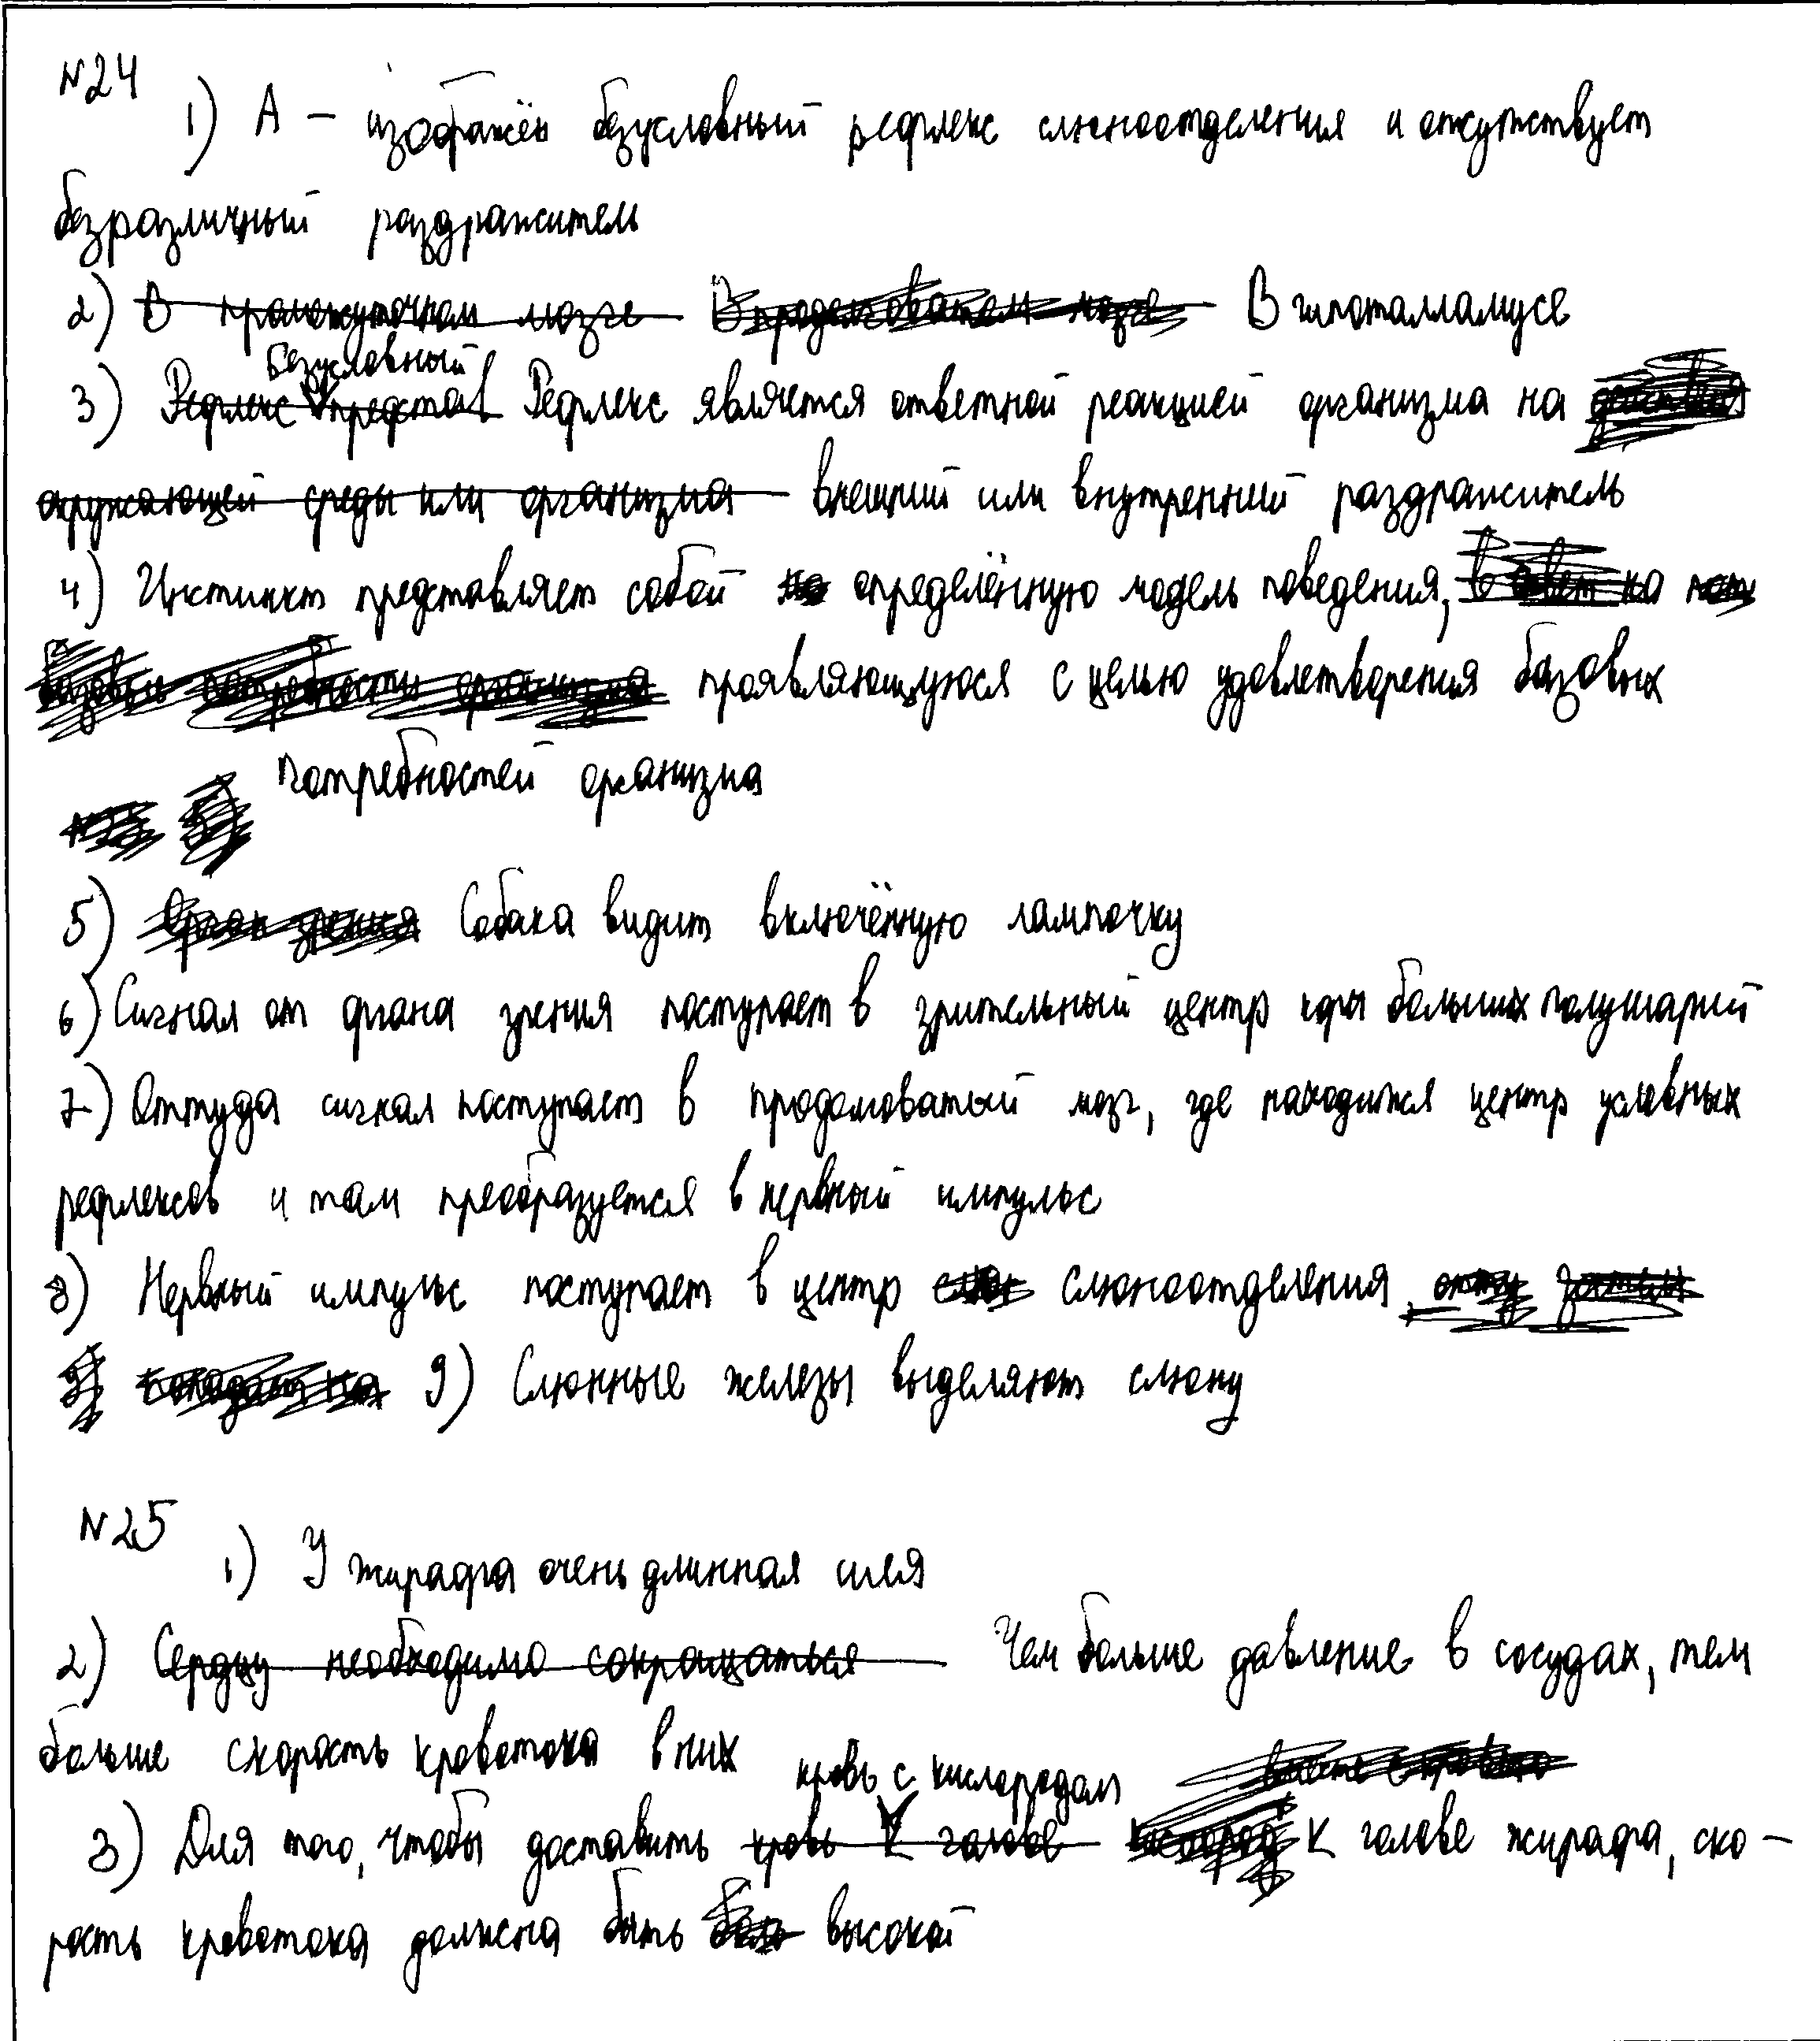 №24
1) А – изображён безусловный рефлекс слюноотделения и отсутствует
безразличный раздражитель
2) В промежуточном мозге В продолговатом мозге В гипоталламусе
безусловный
3) Рефлекс представ Рефлекс является ответной реакцией организма на
окружающей среды или организма внешний или внутренний раздражитель
4) Инстинкт представляет собой определённую модель поведения,
проявляющуюся с целью удовлетворения базовых
потребностей организма
5) Орган зрения Собака видит включённую лампочку
6) Сигнал от органа зрения поступает в зрительный центр коры больших полушарий
7) Оттуда сигнал поступает в продолговатый мозг, где находится центр условных
рефлексов и там преобразуется в нервный импульс
8) Нервный импульс поступает в центр слюноотделения
9) Слюнные железы выделяют слюну
№25
1) У жирафа очень длинная шея
2) Сердцу необходимо сокращаться Чем больше давление в сосудах, тем
больше скорость кровотока в них
кровь с кислородом
3) Для того, чтобы доставить кровь к голове к голове жирафа, ско-
рость кровотока должна быть высокой